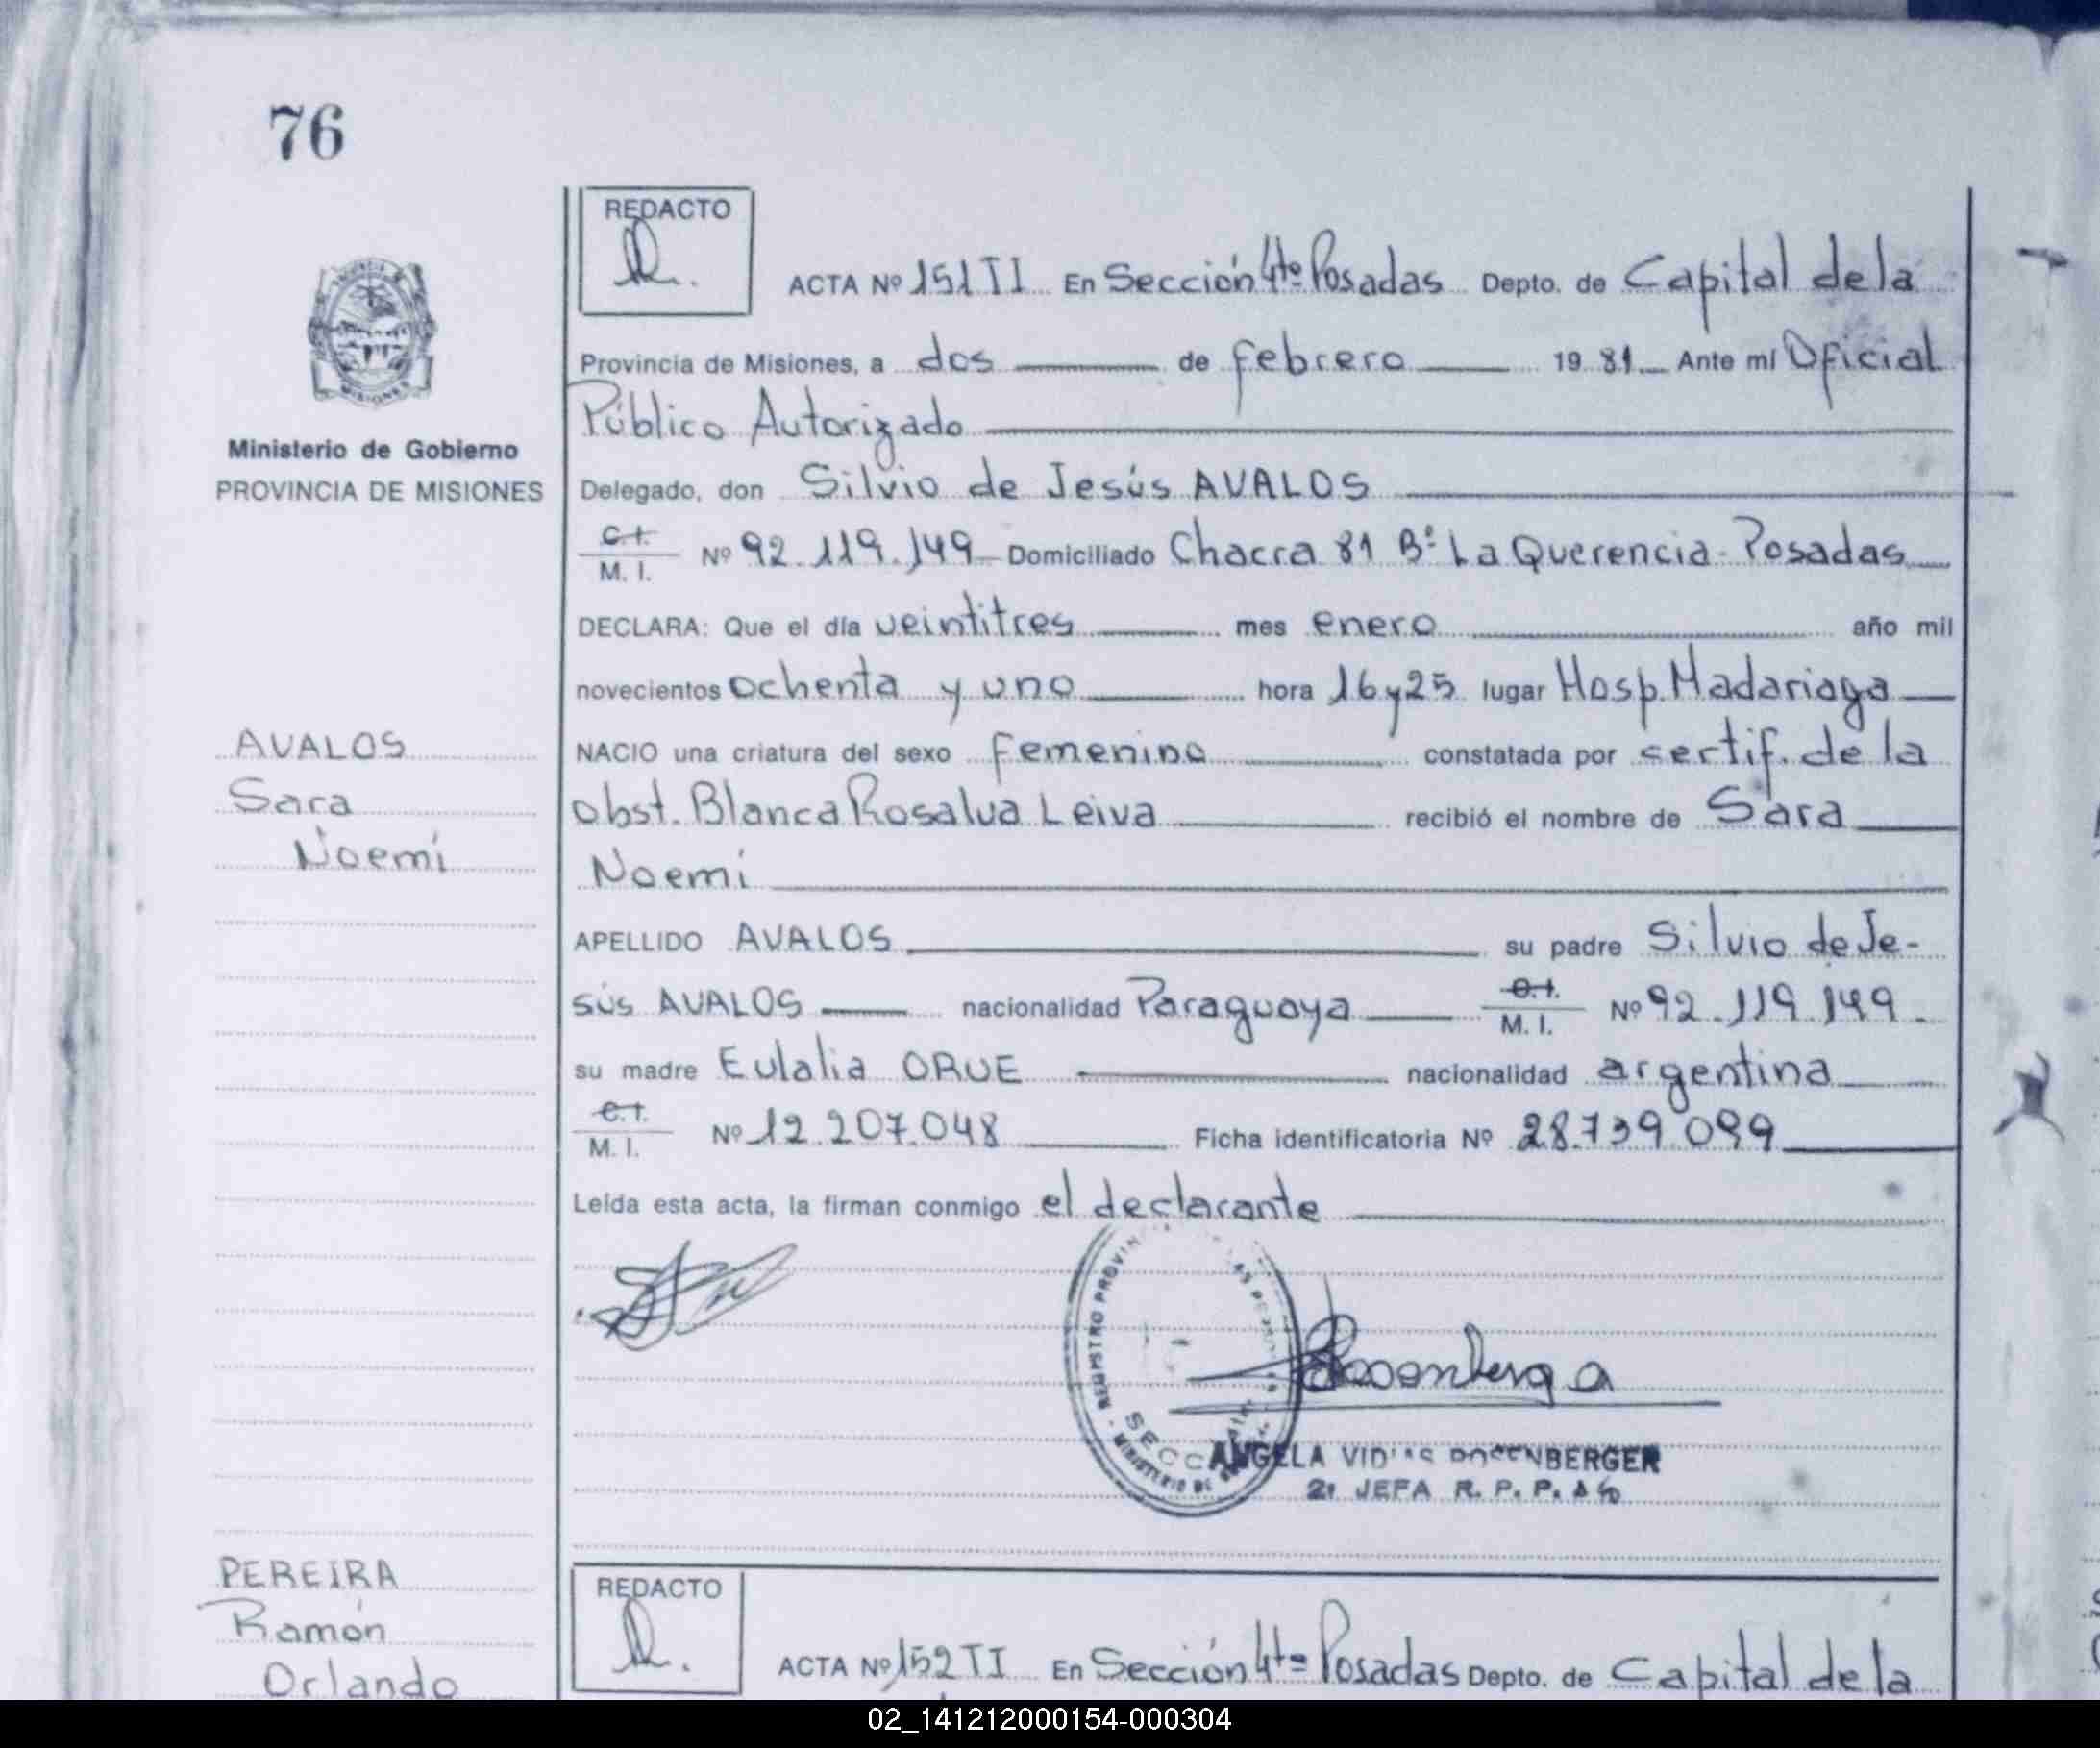 76
REDACTO
ACTA Nº 151 TI En Sección 4ta Posadas Depto. de Capital de la
Provincia de Misiones, a dos de febrero 19 81 Ante mí Oficial
Público Autorizado
Ministerio de Gobierno
PROVINCIA DE MISIONES
Delegado, don Silvio de Jesús AVALOS
C.I.
M. I. Nº 92.119.149 Domiciliado Chacra 81 Bº La Querencia - Posadas
DECLARA: Que el día veintitres mes enero año mil
novecientos ochenta y uno hora 16 y 25 lugar Hosp. Madariaga
AVALOS
Sara
Noemí
NACIO una criatura del sexo femenino constatada por sertif. de la
obst. Blanca Rosalva Leiva recibió el nombre de Sara
Noemí
APELLIDO AVALOS su padre Silvio de Je-
sús AVALOS nacionalidad Paraguaya C.I. M. I. Nº 92.119.149.
su madre Eulalia ORUE nacionalidad argentina
C.I.
M. I. Nº 12.207.048 Ficha identificatoria Nº 28.739.099
Leída esta acta, la firman conmigo el declarante
REGISTRO PROVIN
SECC
MINISTERIO DE
ANGELA ROSENBERGER
2º JEFA R. P. P.
PEREIRA
Ramón
Orlando
REDACTO
ACTA Nº 152 TI En Sección 4ta Posadas Depto. de Capital de la
02_141212000154-000304